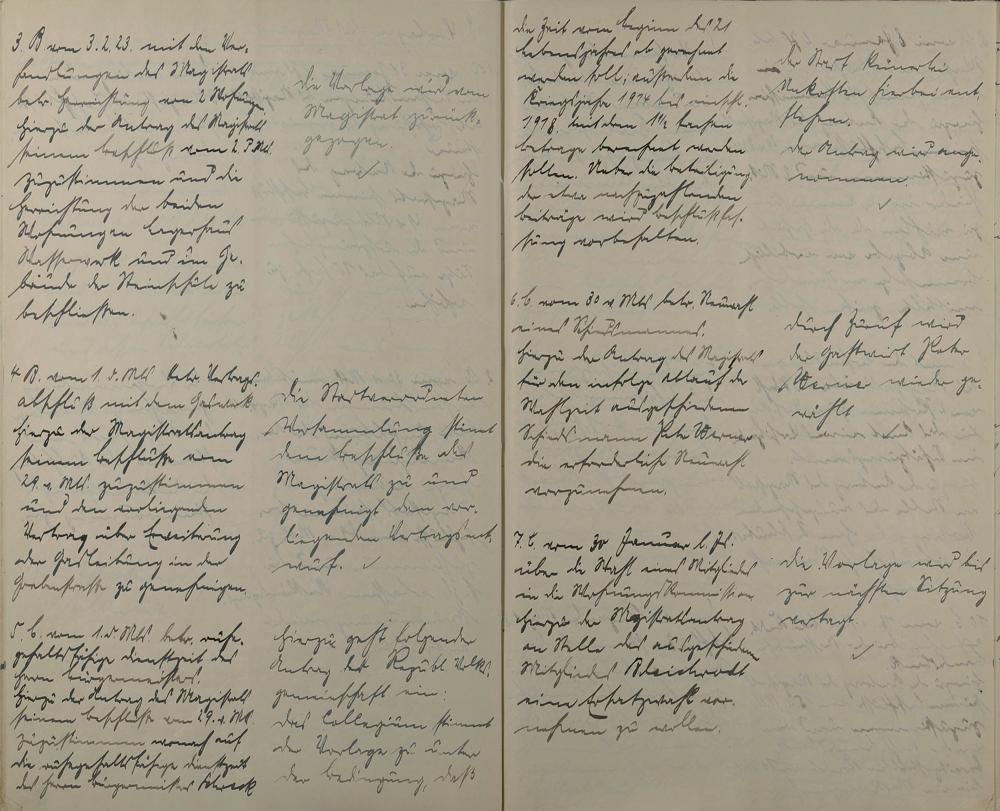 3. B vom 3.2.23. mit den Ver-
handlungen des Magistrats
betr. Herrichtung von 2 Wohnungen
hierzu der Antrag des Magistrats
seinem Beschluß vom 2. d. Mts.
zuzustimmen und die
Herrichtung der beiden
Wohnungen Lagerhaus
Wasserwerk und im Ge-
bäude der Steinschule zu
beschließen.
die Vorlage wird vom
Magistrat zurück-
gezogen.
4. B. vom 1. d. Mts betr. Vertrags-
abschluß mit dem Gaswerk
hierzu der Magistratsantrag
seinem Beschlusse vom
29. v. Mts zuzustimmen
und den vorliegenden
Vertrag über Erweiterung
der Gasleitung in der
Grabenstrasse zu genehmigen.
die Stadtverordneten
Versammlung stimmt
dem Beschlusse des
Magistrats zu und
genehmigt den vor-
liegenden Vertragsent-
wurf.
5. B. vom 1. d Mts. betr. ruhe-
gehaltsfähige Dienstzeit des
Herrn Bürgermeisters.
hierzu der Antrag des Magistrats
seinem Beschlusse vom 29. v. Mts.
zuzustimmen wonach auf
die ruhegehaltsfähige Dienstzeit
des Herrn Bürgermeisters
hierzu geht folgender
Antrag der Republ Volks-
gemeinschaft ein:
das Collegium stimmt
der Vorlage zu unter
der Bedingung, daß
die Zeit vom Beginn des 21
Lebensjahres ab gerechnet
werden soll; außerdem die
Kriegsjahre 1914 bis einschl.
1918 mit dem 1½ fachen
betrage berechnet werden
sollen. Ueber die Beteiligung
der etwa nachzuzahlenden
beiträge wird Beschlußfas-
sung vorbehalten.
der Stadt keinerlei
Unkosten hierbei ent-
stehen.
der Antrag wird ange-
nommen.
6. B. vom 30 v Mts betr. Neuwahl
eines Schiedsmannes.
hierzu der Antrag des Magistrats
für den infolge Ablauf der
Wahlzeit ausgeschiedenen
Schiedsmann Peter Werner
die erforderliche Neuwahl
vorzunehmen.
durch Zuruf wird
der Gastwirt Peter
Werner wieder ge-
wählt
7. B. vom 30 Januar l. Js.
über die Wahl eines Mitgliedes
in die Wohnungskommission
hierzu der Magistratsantrag
an Stelle des ausgeschiedenen
Mitgliedes Bleichrodt
eine Ersatzwahl vor-
nehmen zu wollen.
die Vorlage wird bis
zur nächsten Sitzung
vertagt.